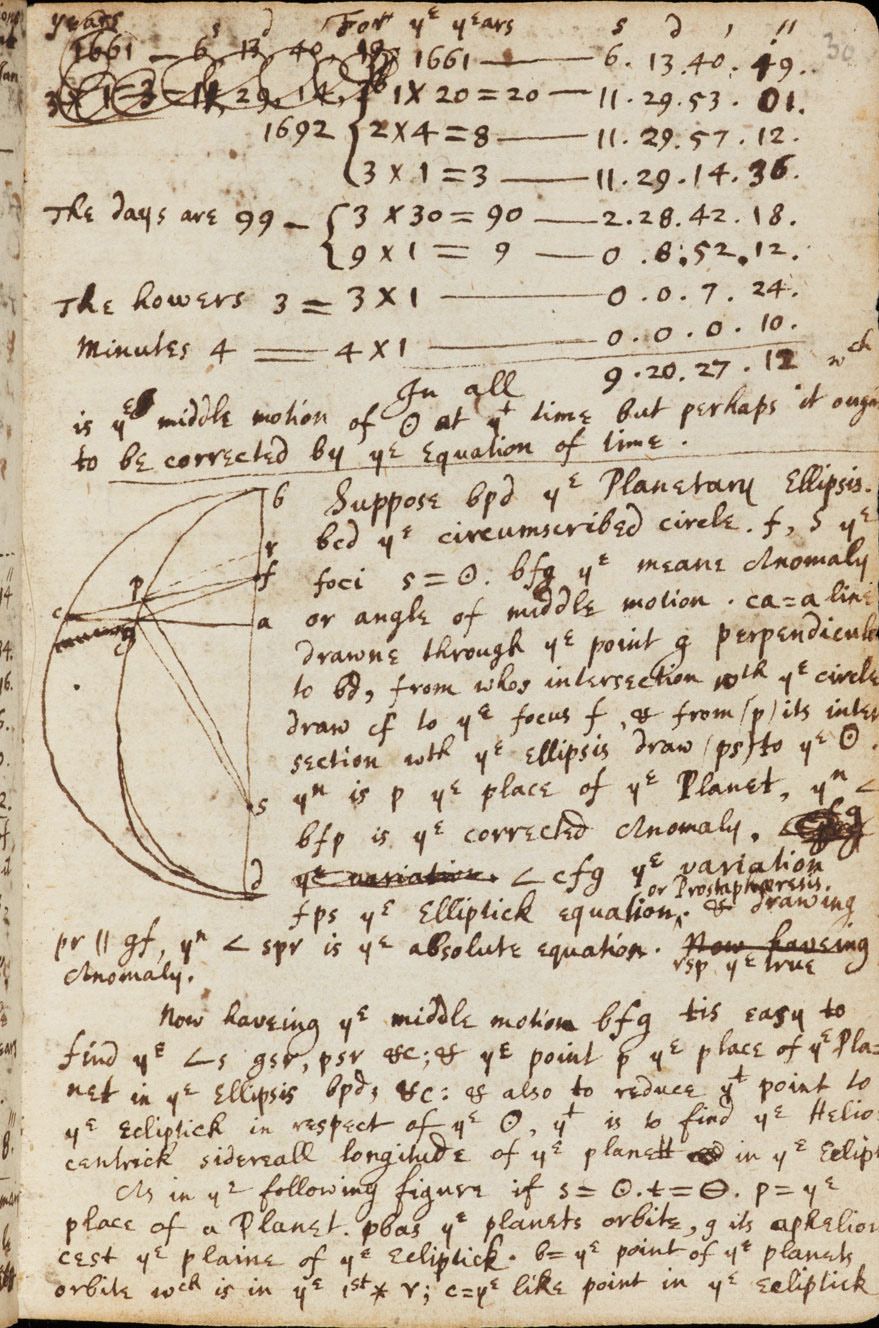 years s d For yᵉ years s d ′ ″ 30
1661 — 6. 13. 40. 19. 1661 —— 6. 13. 40. 49.
3 × 1 = 3 = 11, 29, 14, 1 × 20 = 20 — 11. 29. 53. 01.
1692 { 2 × 4 = 8 —— 11. 29. 57. 12.
3 × 1 = 3 —— 11. 29. 14. 36.
The days are 99 — { 3 × 30 = 90 —— 2. 28. 42. 18.
9 × 1 = 9 —— 0. 8. 52. 12.
The howers 3 = 3 × 1 —— 0. 0. 7. 24.
Minutes 4 = 4 × 1 —— 0. 0. 0. 10.
In all 9. 20. 27. 12 wᶜʰ
is yᵉ middle motion of ☉ at yᵗ time but perhaps it ough
to be corrected by yᵉ Equation of time.
b
r
f
p
c
a
g
s
d
Suppose bpd yᵉ Planetary Ellipsis.
bcd yᵉ circumscribed circle. f, s yᵉ
foci s = ☉. bfg yᵉ meane Anomaly
or angle of middle motion. ca = a line
drawne through yᵉ point g perpendicul
to bd, from whos intersection wth yᵉ circle
draw cf to yᵉ focus f, & from (p) its inter
section wth yᵉ Ellipsis draw (ps) to yᵉ ☉.
yⁿ is p yᵉ place of yᵉ Planet, yⁿ <
bfp is yᵉ corrected Anomaly. <cfg
yᵉ variation. < cfg yᵉ variation
or Prostaphæresis.
fps yᵉ Elliptick equation, & drawing
pr || gf, yⁿ < spr is yᵉ absolute equation. Now haveing
rsp yᵉ true
Anomaly.
Now haveing yᵉ middle motion bfg tis easy to
find yᵉ <s gsr, psr &c; & yᵉ point p yᵉ place of yᵉ Pla=
net in yᵉ Ellipsis bpd, &c: & also to reduce yᵗ point to
yᵉ Ecliptick in respect of yᵉ ☉, yᵗ is to find yᵉ Helio
centrick sidereall longitude of yᵉ planett in yᵉ Eclipt
As in yᵉ following figure if s = ☉. t = ⊖. p = yᵉ
place of a Planet. pbas yᵉ planets orbite, g its aphelion
cest yᵉ plaine of yᵉ Ecliptick. b = yᵉ point of yᵉ planets
orbite wᶜʰ is in yᵉ 1ˢᵗ * ♈; c = yᵉ like point in yᵉ ecliptick